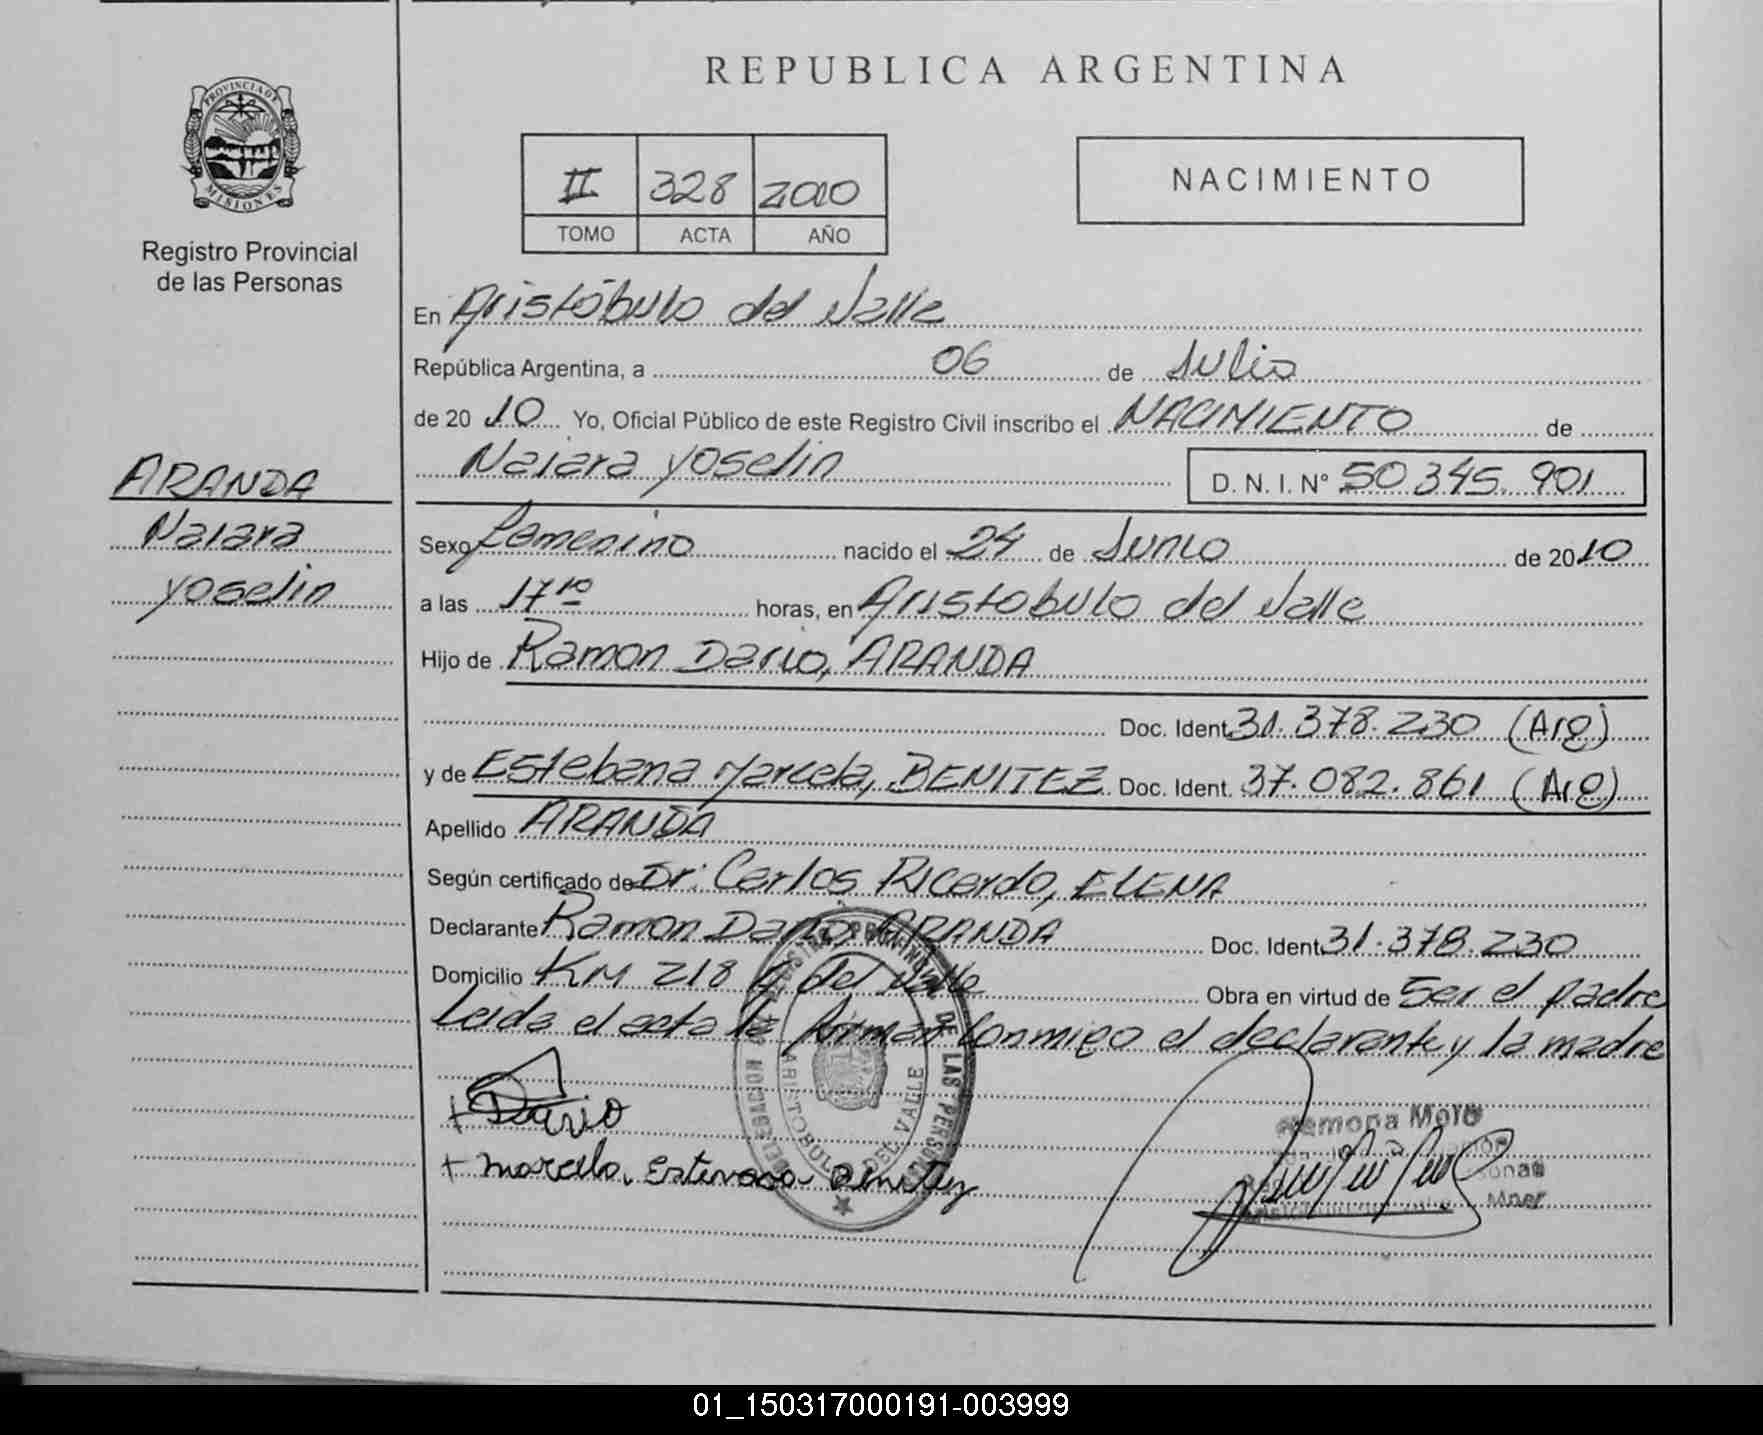 REPUBLICA ARGENTINA
PROVINCIA DE
MISIONES
Registro Provincial
de las Personas
II 328 2010
TOMO ACTA AÑO
NACIMIENTO
En Aristóbulo del Valle
República Argentina, a 06 de Julio
de 20 10 Yo, Oficial Público de este Registro Civil inscribo el NACIMIENTO de
Naiara Yoselin D. N. I. N° 50 345. 901
ARANDA
Naiara
Yoselin
Sexo Femenino nacido el 24 de Junio de 20 10
a las 17 10 horas, en Aristobulo del Valle
Hijo de Ramon Dario, ARANDA
Doc. Ident. 31.378.230 (Arg)
y de Estebana Marcela, BENITEZ Doc. Ident. 37.082.861 (Arg)
Apellido ARANDA
Según certificado de Dr: Carlos Ricardo, ELENA
Declarante Ramon Dario, ARANDA Doc. Ident. 31.378.230
Domicilio KM 218 A. del Valle Obra en virtud de Ser el padre
Leida el acta la firman conmigo el declarante y la madre
DE LAS PERSONAS
ARISTOBULO DEL VALLE
+ Dario
+ Marcela. Estevana Benitez
Ramona
01_150317000191-003999